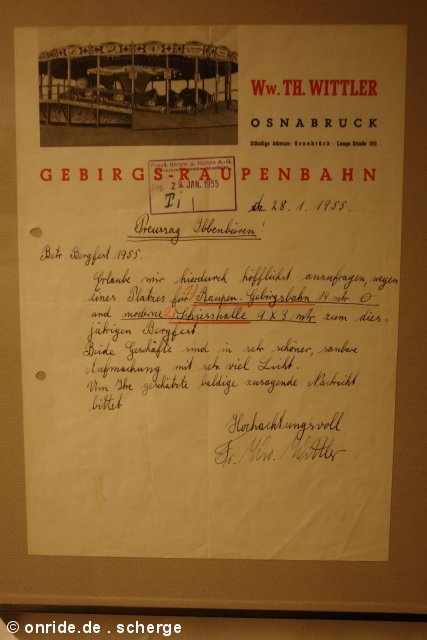 Ww. TH. WITTLER
OSNABRÜCK
Ständige Adresse: Osnabrück Lange Straße 102
GEBIRGS-RAUPENBAHN
Preuß. Bergw. u. Hütten A.-G.
Eing. 29. JAN. 1955
28.1.1955.
Preussag Ibbenbüren
Betr. Bergfest 1955.
Erlaube mir hierdurch höfflichst anzufragen, wegen
eines Platzes für Raupen-Gebirgsbahn 14 mtr
und moderne Schiesshalle 9 x 3 mtr zum dies-
jährigen Bergfest.
Beide Geschäfte sind in sehr schöner, saubere
Aufmachung mit sehr viel Licht.
Um Ihre geschätzte baldige zusagende Nachricht
bittet
Hochachtungsvoll
Fr. Ww. Wittler
© onride.de . scherge